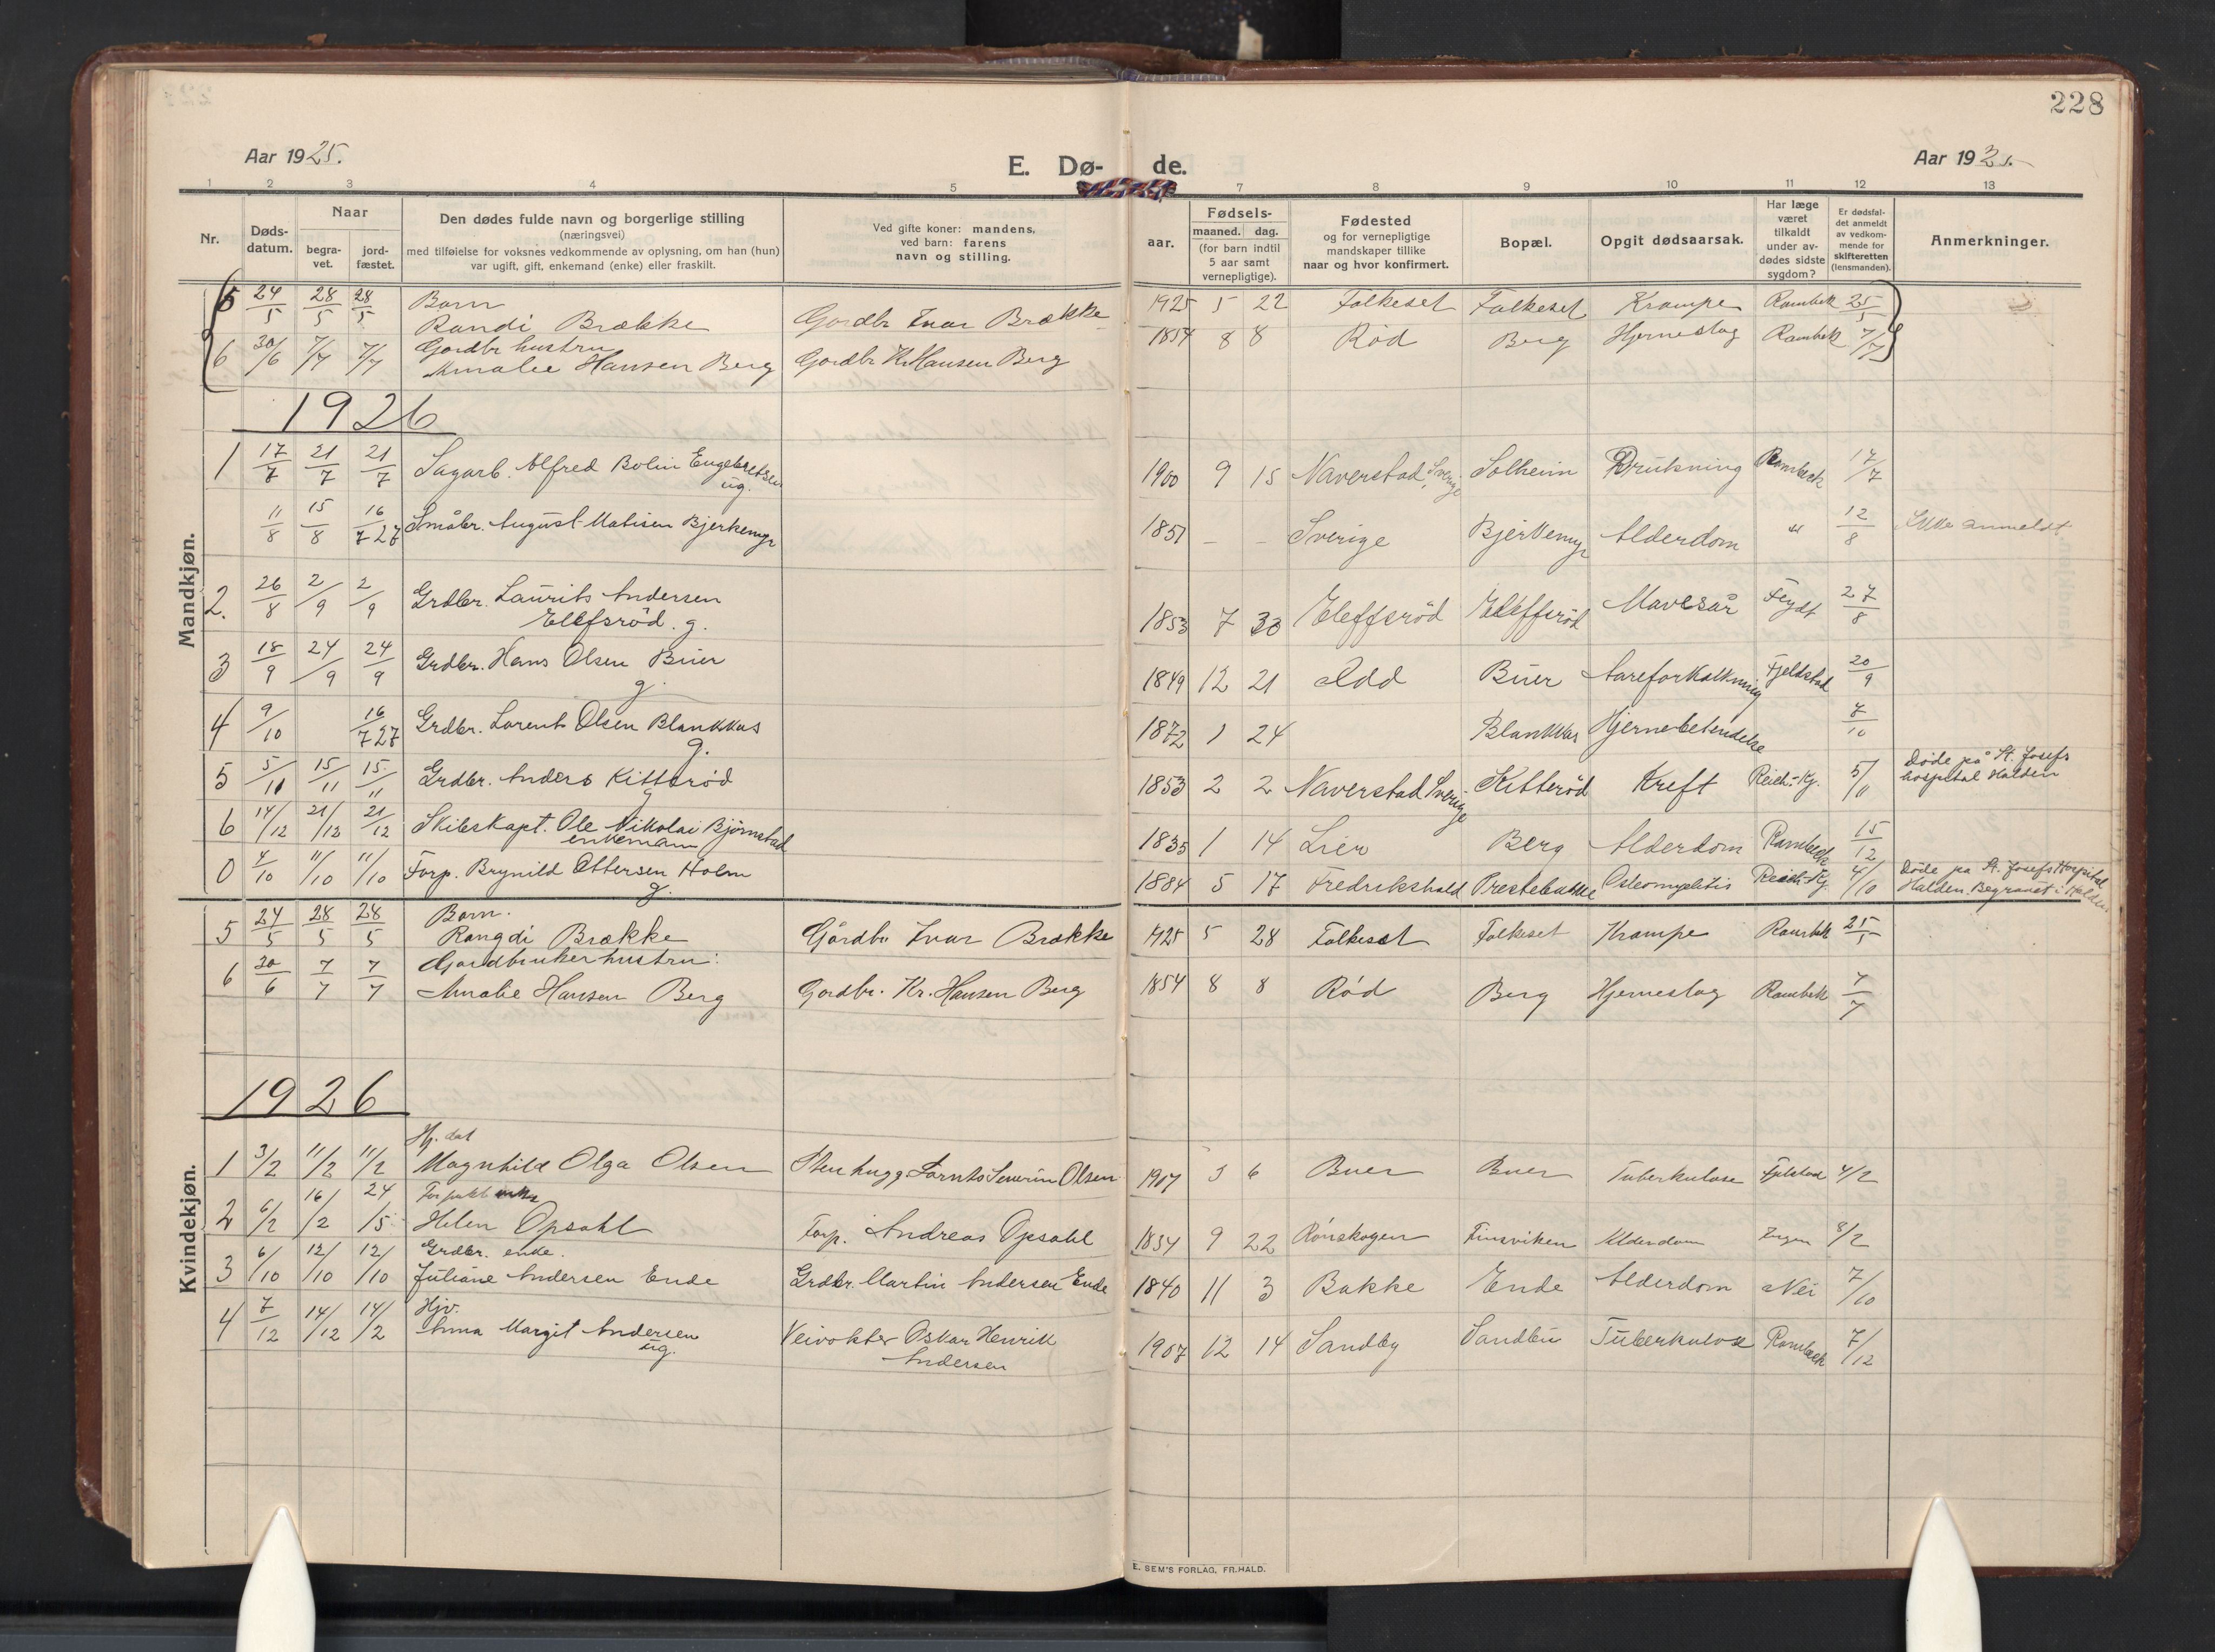 228
Aar 1925.
E. Dø- de.
Aar 1925.
1 2 3 4 5 7 8 9 10 11 12 13
Nr.
Døds-
datum.
Naar
begra-
vet.
jord-
fæstet.
Den dødes fulde navn og borgerlige stilling
(næringsvei)
med tilføielse for voksnes vedkommende av oplysning, om han (hun)
var ugift, gift, enkemand (enke) eller fraskilt.
Ved gifte koner: mandens,
ved barn: farens
navn og stilling.
aar.
Fødsels-
maaned. dag.
(for barn indtil
5 aar samt
vernepligtige).
Fødested
og for vernepligtige
mandskaper tillike
naar og hvor konfirmert.
Bopæl.
Opgit dødsaarsak.
Har læge
været
tilkaldt
under av-
dødes sidste
sygdom?
Er dødsfal-
det anmeldt
av vedkom-
mende for
skifteretten
(lensmanden).
Anmerkninger.
Mandkjøn.
5 24/5 28/5 28/5 Barn
Randi Brække Gardbr Ivar Brække 1925 5 22 Folkeset Folkeset Krampe Rambek 25/5
6 30/6 7/7 7/7 Gardbr hustru
Amalie Hansen Berg Gardbr Kr Hansen Berg 1854 8 8 Rød Berg Hjerneslag Rambek 7/7
1926
1 17/7 21/7 21/7 Sagarb. Alfred Bolin Engebretsen
ug. 1900 9 15 Naverstad, Sverige Solheim Drukning Rambeck 17/7
11/8 15/8 16/7 27 Småbr. August Matisen Bjerkemyr 1851 - - Sverige Bjerkemyr Alderdom " 12/8 Ikke anmeldt
2. 26/8 2/9 2/9 Grdbr. Laurits Andersen
Elefsrød. g. 1853 7 30 Eleffsrød Eleffsrød Mavesår Feydt 27/8
3 18/9 24/9 24/9 Grdbr. Hans Olsen Buer
g. 1849 12 21 Idd Buer Aareforkalkning Fjeldstad 20/9
4 9/10 16/7 27 Grdbr. Lorents Olsen Blankkas
g. 1872 1 24 Blankkas Hjernebetendelse 7/10
5 5/11 15/11 15/11 Grdbr. Anders Kitterød
g 1853 2 2 Naverstad Sverige Kitterød Kreft Reich.-Kj. 5/11 Døde på St. Josefs
hospital Halden
6 14/12 21/12 21/12 Skibskapt. Ole Nikolai Bjørnstad
enkemann 1835 1 14 Lier Berg Alderdom Rambeck 15/12
0 4/10 11/10 11/10 Forp. Brynild Ottersen Holm
g. 1884 5 17 Fredrikshald Prestebakke Osteomyelitis Reich.-Kj. 4/10 Døde på St. Josefs Hospital
Halden. Begravet i Halden.
Kvindekjøn.
5 24/5 28/5 28/5 Barn.
Rangdi Brække Gårdbr Ivar Brække 1925 5 28 Folkeset Folkeset Krampe Rambek 25/5
6 30/6 7/7 7/7 Gardbruker hustru:
Amalie Hansen Berg Gardbr. Kr. Hansen Berg 1854 8 8 Rød Berg Hjerneslag Rambek 7/7
1926
1 3/2 11/2 11/2 Hj. dat
Magnhild Olga Olsen Stenhugg Lornts Severin Olsen 1907 3 6 Buer Buer Tuberkulose Fjelstad 4/2
2 6/2 16/2 24/5 Forpakt enke
Helen Opsahl Forp. Andreas Opsahl 1834 9 22 Rønskogen Finsviken Alderdom Ingen 8/2
3 6/10 12/10 12/10 Grdbr. enke.
Juliane Andersen Ende Grdbr. Martin Andersen Ende 1840 11 3 Bakke Ende Alderdom Nei 7/10
4 7/12 14/12 14/2 Hjv.
Anna Margit Andersen
ug. Veivokter Oskar Henrik
Andersen 1907 12 14 Sandby Sandbu Tuberkulose Rambeck 7/12
E. SEM'S FORLAG, FR.HALD.